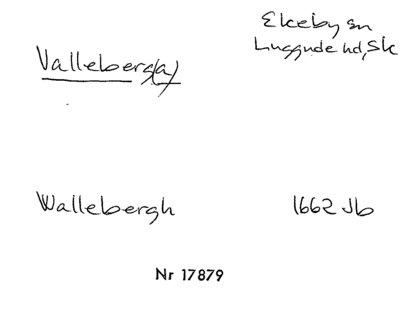 Valleberg(a)
Ekeby sn
Luggude hd, Sk
Wallebergh
1662 Jb
Nr 17879